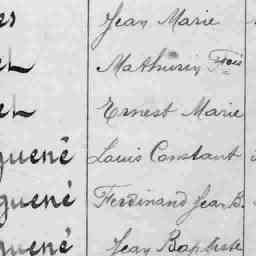 es Jean Marie
el Mathurin Fcois
el Ernest Marie
guené Louis Constant
guené Ferdinand Jean B.
guené Jean Baptiste